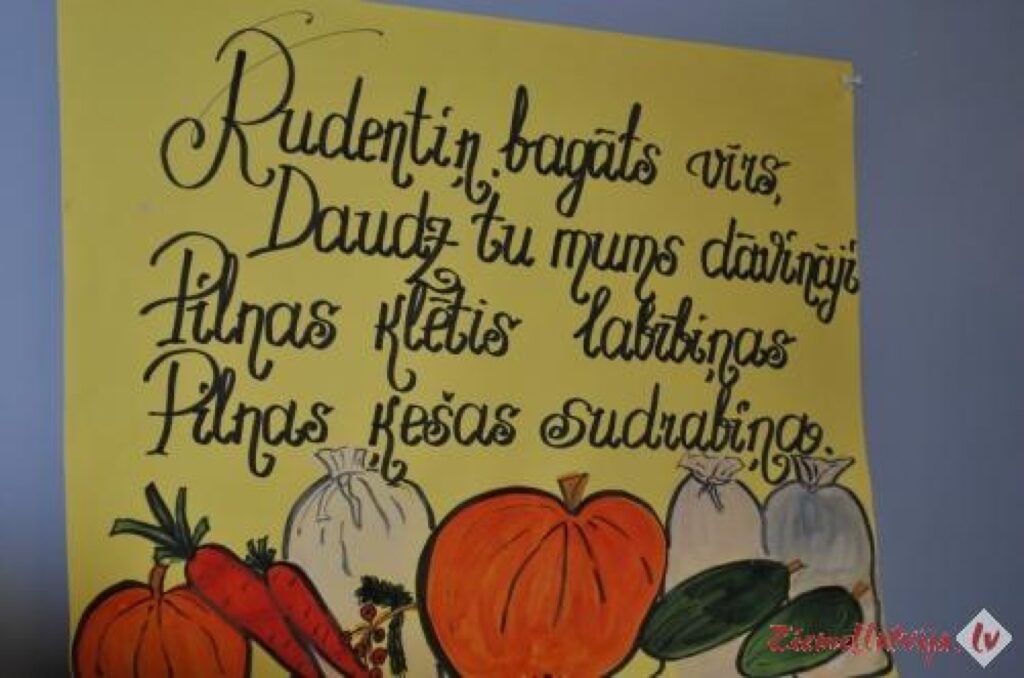 Rudentiņ, bagāts vīrs,
Daudz tu mums dāvināji
Pilnas klētis labībiņas
Pilnas ķešas sudrabiņa.
Ziemellatvija.lv